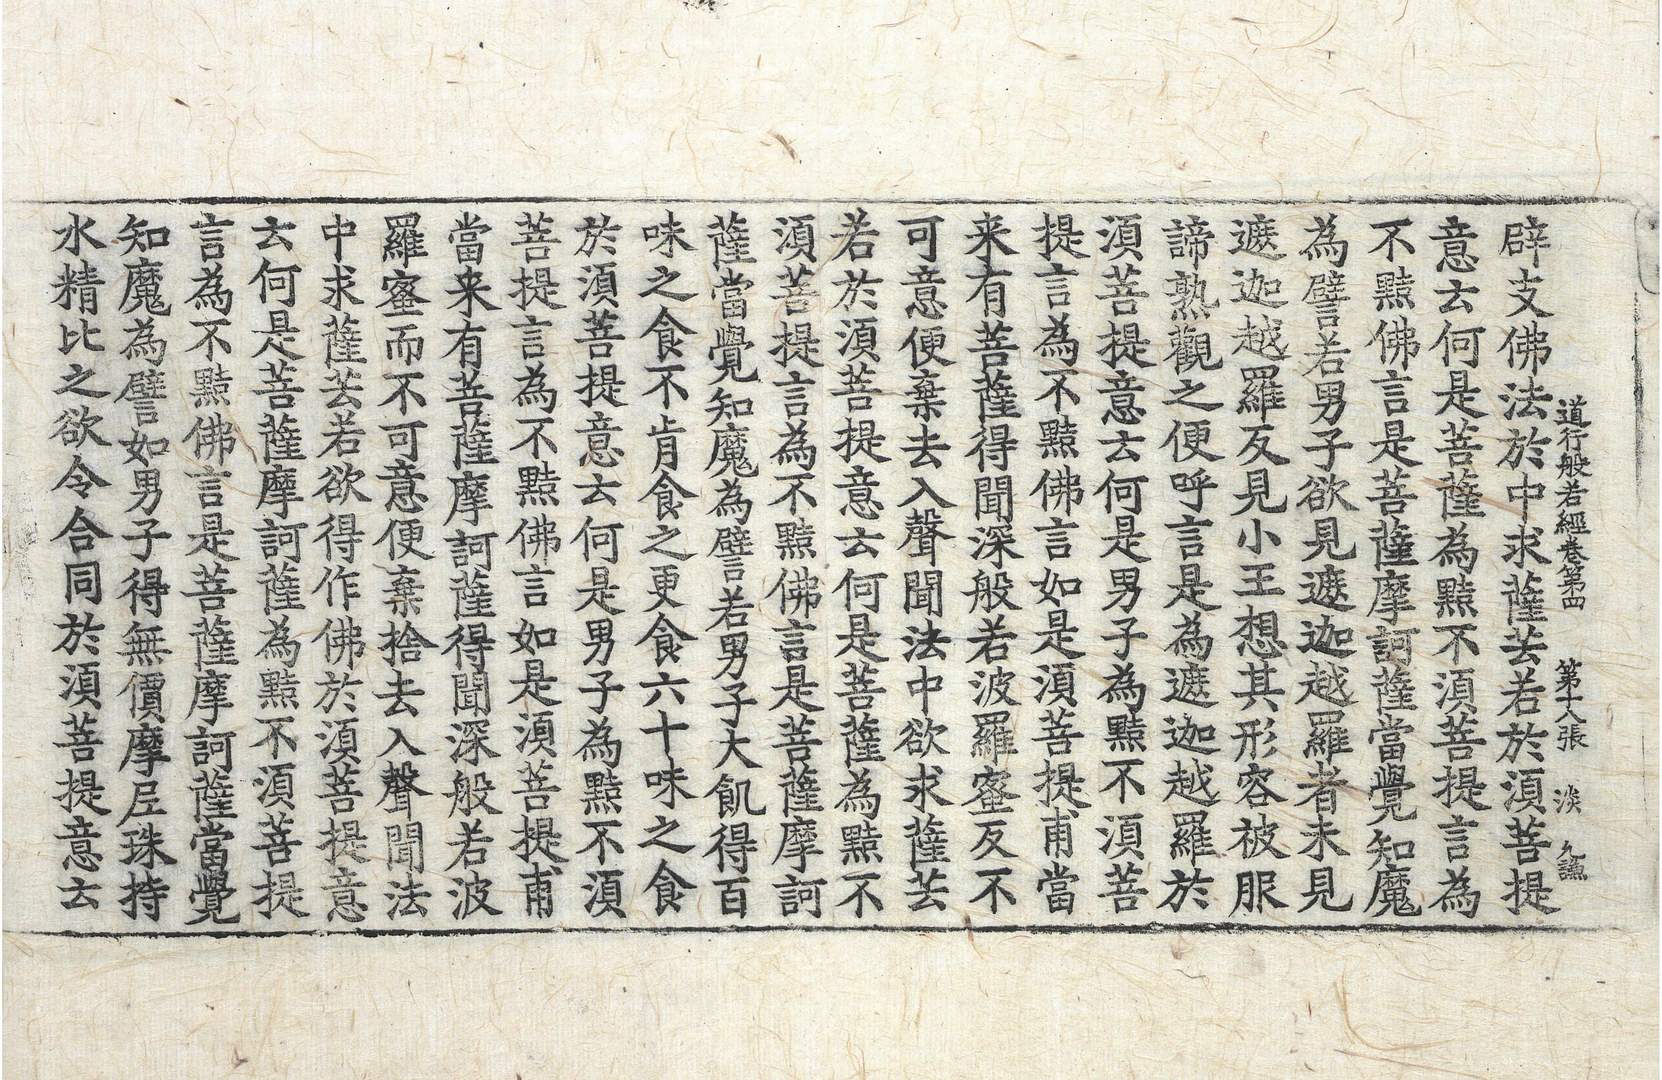 道行般若經卷第四 第十八張 淡
辟支佛法於中求薩芸若於須菩提
意云何是菩薩為黠不須菩提言為
不黠佛言是菩薩摩訶薩當覺知魔
為譬若男子欲見遮迦越羅者未見
遮迦越羅反見小王想其形容被服
諦熟觀之便呼言是為遮迦越羅於
須菩提意云何是男子為黠不須菩
提言為不黠佛言如是須菩提甫當
来有菩薩得聞深般若波羅蜜反不
可意便棄去入聲聞法中欲求薩芸
若於須菩提意云何是菩薩為黠不
須菩提言為不黠佛言是菩薩摩訶
薩當覺知魔為譬若男子大飢得百
味之食不肯食之更食六十味之食
於須菩提意云何是男子為黠不須
菩提言為不黠佛言如是須菩提甫
當来有菩薩摩訶薩得聞深般若波
羅蜜而不可意便棄捨去入聲聞法
中求薩芸若欲得作佛於須菩提意
云何是菩薩摩訶薩為黠不須菩提
言為不黠佛言是菩薩摩訶薩當覺
知魔為譬如男子得無價摩尼珠持
水精比之欲令合同於須菩提意云